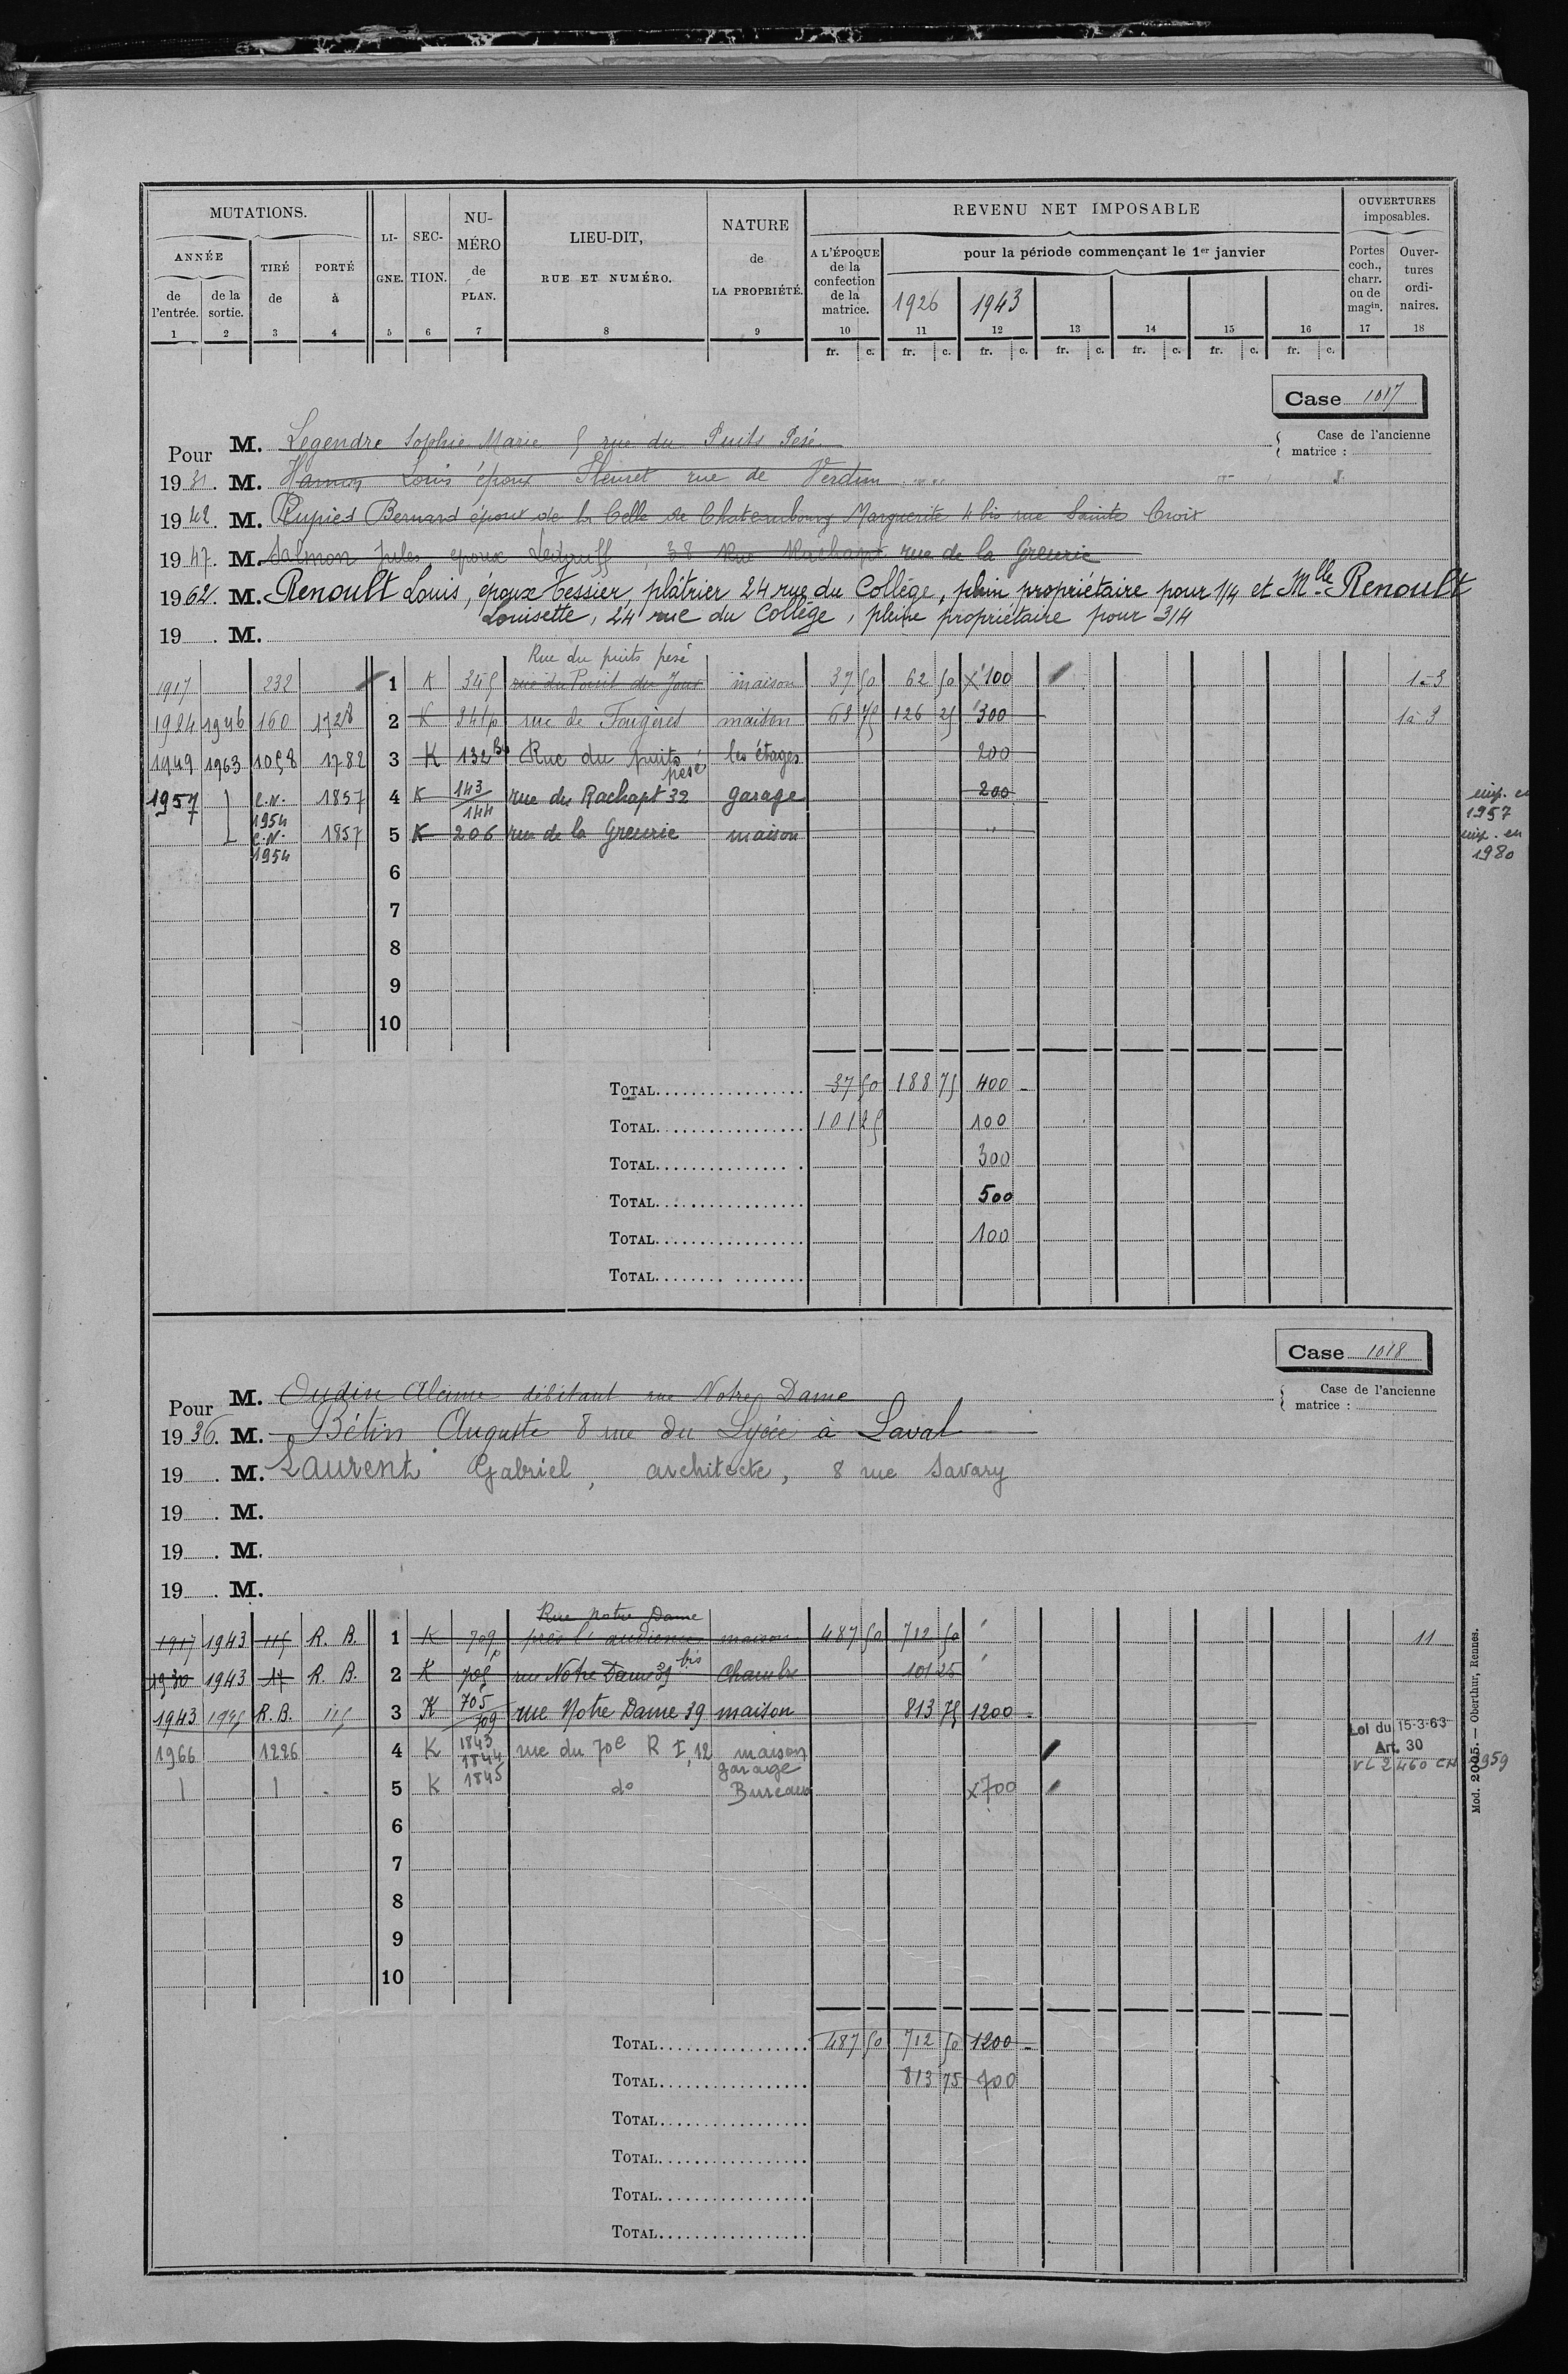 MUTATIONS.
ANNÉE
de l'entrée.
de la sortie.
TIRÉ de
PORTÉ à
LIGNE.
SECTION.
NUMÉRO de PLAN.
LIEU-DIT, RUE ET NUMÉRO.
NATURE de LA PROPRIÉTÉ.
REVENU NET IMPOSABLE
A L'ÉPOQUE de la confection de la matrice.
pour la période commençant le 1er janvier
1926 1943
OUVERTURES imposables.
Portes coch., charr. ou de magin.
Ouvertures ordinaires.
1 2 3 4 5 6 7 8 9 10 11 12 13 14 15 16 17 18
fr. c. fr. c. fr. c. fr. c. fr. c. fr. c. fr. c.
Case 1017
Case de l'ancienne matrice :
Pour M. Legendre Sophie Marie 5 rue du Puits Pesé
1931. M. Hamon Louis époux Fleuret rue de Verdun
1942 M. Rupied Bernard époux de la Celle de Chateaubourg Marguerite 4 bis rue Sainte Croix
1947. M. Salmon Jules, époux 38 Rue Rachapt rue de la Greurie
1962. M. Renoult Louis, époux Tessier, plâtrier 24 rue du Collège, plein propriétaire pour 1/4 et Mlle Renoult
Louisette, 24 rue du Collège, pleine propriétaire pour 3/4
19 . M.
Rue du puits pesé
1917 232 1 K 345 maison 37 50 62 50 x 100 1-3
1924 1946 160 1728 2 K 344p rue de Fougères maison 63 75 126 25 300 1à 3
1949 1963 1058 1782 3 K 132 Bis Rue du puits pesé les étages 200
1957 C.N. 1954 1857 4 K 143/144 rue du Rachapt 32 garage 200 imp. en 1957
C.N. 1954 1857 5 K 206 rue de la Greurie maison " imp. en 1980
6
7
8
9
10
TOTAL 37 50 188 75 400
TOTAL 101 25 100
TOTAL 300
TOTAL 500
TOTAL 100
TOTAL
Case 1018
Case de l'ancienne matrice :
Pour M. Oudin Alcime débitant rue Notre Dame
1936. M. Bétin Auguste 8 rue du Lycée à Laval
19 . M. Laurent Gabriel, architecte, 8 rue Savary
19 . M.
19 . M.
19 . M.
Rue Notre Dame
1917 1943 115 R. B. 1 K 709p près l'audience maison 487 50 712 50 " 11
1930 1943 R. B. 2 K 705 rue Notre Dame 39 bis Chambre 101 25 "
1943 1945 R. B. 115 3 K 705/709 rue Notre Dame 39 maison 813 75 1200
Loi du 15-3-63
Art. 30
1966 1226 4 K 1843 1844 rue du 70e R I, 12 maison garage VL 2460 CN 1959
5 K 1845 do Bureau x 700
6
7
8
9
10
TOTAL 487 50 712 50 1200
TOTAL 813 75 700
TOTAL
TOTAL
TOTAL
TOTAL
Mod. 2005. — Oberthur, Rennes.